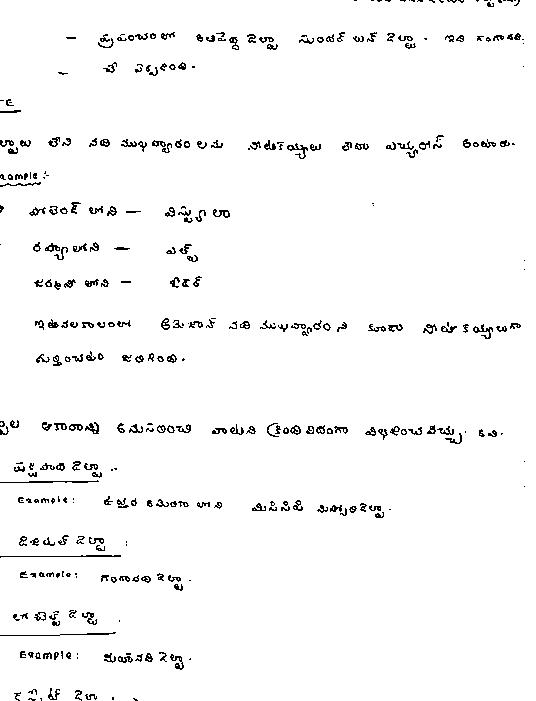 – ప్రపంచంలో అతిపెద్ద డెల్టా సుందర్ బన్ డెల్టా. ఇది గంగానది
– చే ఏర్పడింది.
TE
ల్టాలు లోని నది ముఖద్వారం లను నోటుకెయ్యలు లేదా ఎచ్యురీస్ అంటారు.
xample :-
పోలెండ్ లోని – విస్ట్యులా
రష్యా లోని –
జర్మనీ లోని – ఓడర్
ఇటీవలకాలంలో అమెజాన్ నది ముఖద్వారం ని కూడా
గుర్తించటం జరిగింది.
ఆకారాన్ని అనుసరించి వాటిని క్రింది విధంగా విభజించ వచ్చు. అవి.
పక్షిపాద డెల్టా :-
Example : ఉత్తర అమెరికా లోని మిసిసిపి మిస్సోరి డెల్టా.
డెల్టా :
Example : గంగానది డెల్టా.
డెల్టా .
Example : మహానది డెల్టా.
డెల్టా :